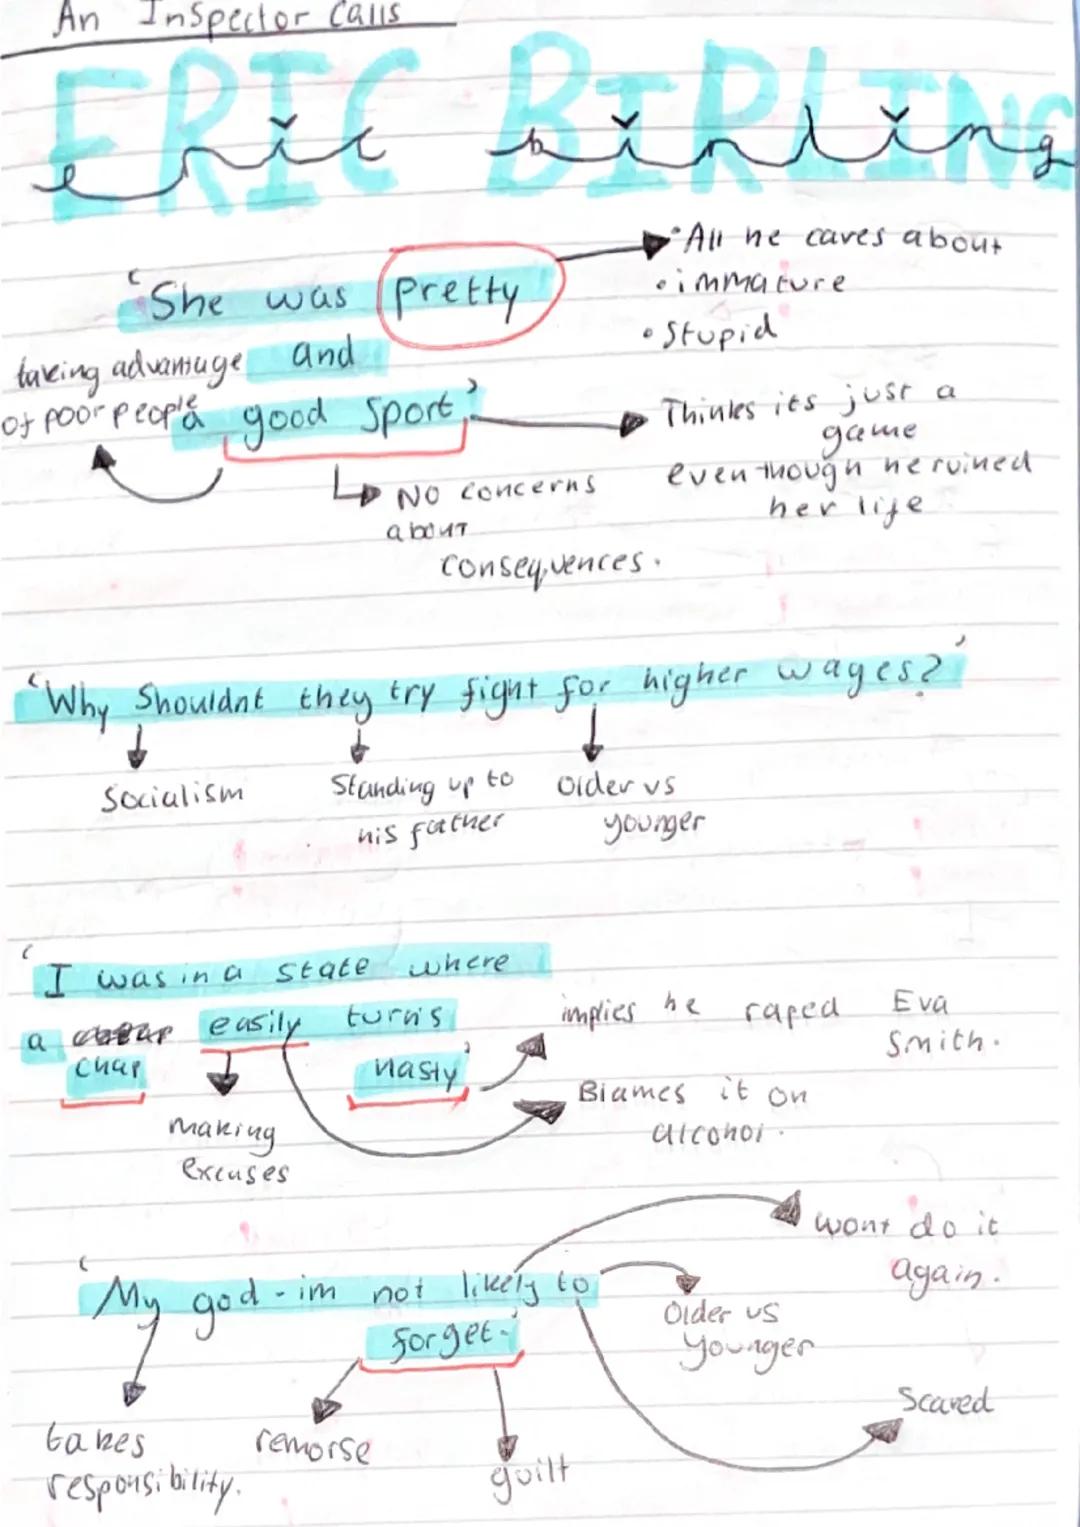 An Inspector Calls
ERIC BIRLING
eric birling
'She was pretty
and
a good sport'
• All he cares about
• immature
• Stupid
taking advantage
of poor people
Thinks its just a
game
even though he ruined
her life
No concerns
about
consequences.
'Why Shouldnt they try fight for higher wages?'
Socialism
Standing up to
his father
Older vs
younger
'I was in a state where
a easily turns
chap nasty'
implies he raped Eva
Smith.
Blames it on
alcohol.
making
excuses
'My god - im not likely to
forget.'
wont do it
again.
Older vs
Younger
Scared
takes
responsibility.
remorse
guilt